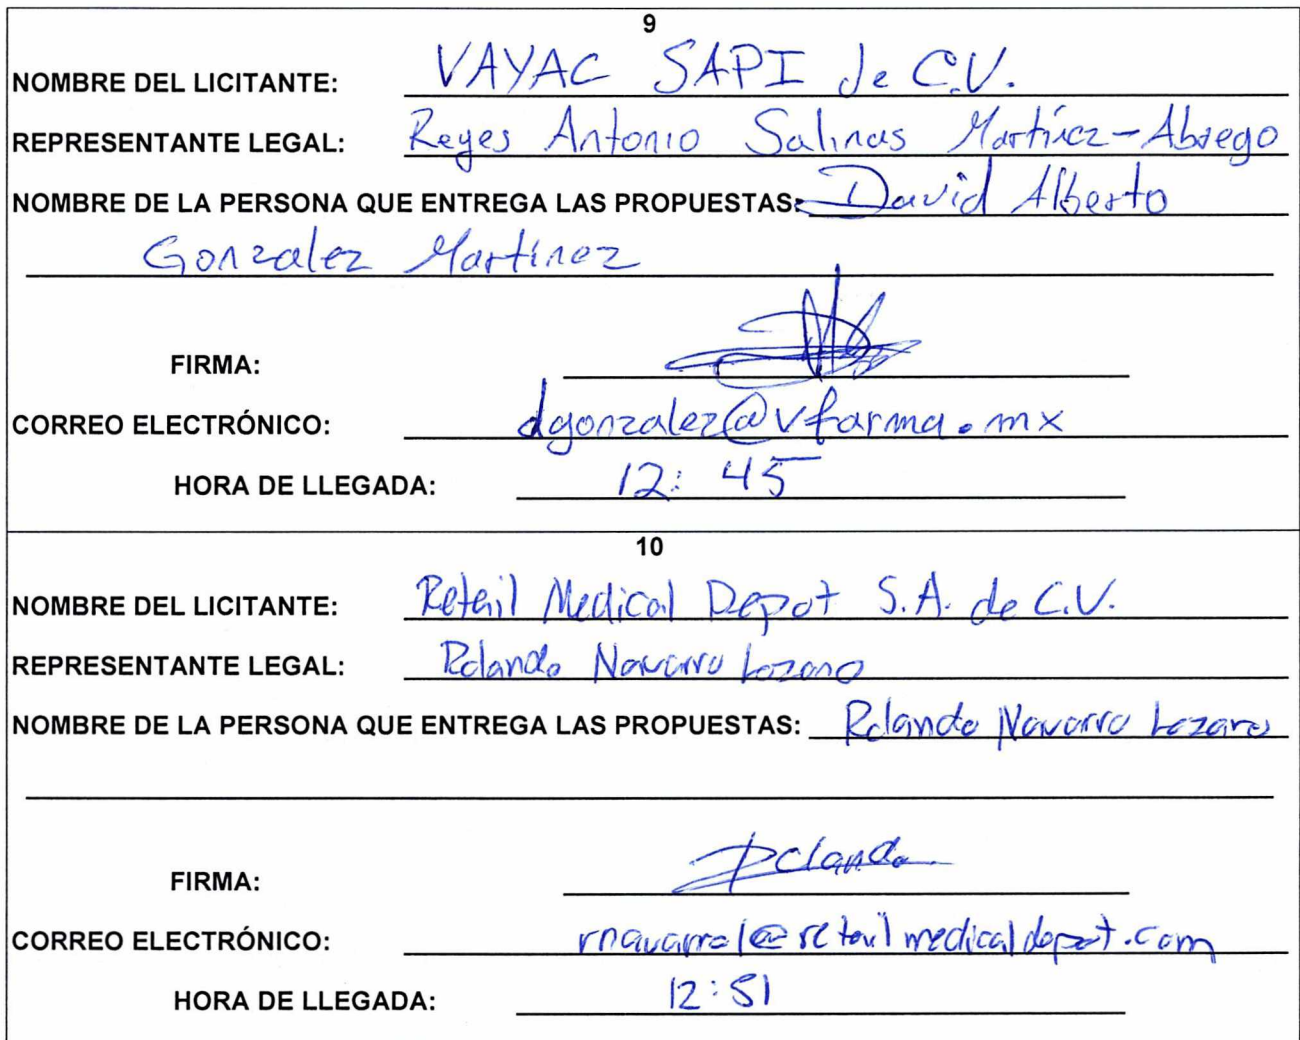 9
NOMBRE DEL LICITANTE: VAYAC SAPI de C.V.
REPRESENTANTE LEGAL: Reyes Antonio Salinas Martínez-Abrego
NOMBRE DE LA PERSONA QUE ENTREGA LAS PROPUESTAS: David Alberto
Gonzalez Martínez
FIRMA:
CORREO ELECTRÓNICO: dgonzalez@vfarma.mx
HORA DE LLEGADA: 12:45
10
NOMBRE DEL LICITANTE: Retail Medical Depot S.A. de C.V.
REPRESENTANTE LEGAL: Rolando Navarro Lozano
NOMBRE DE LA PERSONA QUE ENTREGA LAS PROPUESTAS: Rolando Navarro Lozano
FIRMA: Rolando
CORREO ELECTRÓNICO: rnavarrol@retailmedicaldepot.com
HORA DE LLEGADA: 12:51